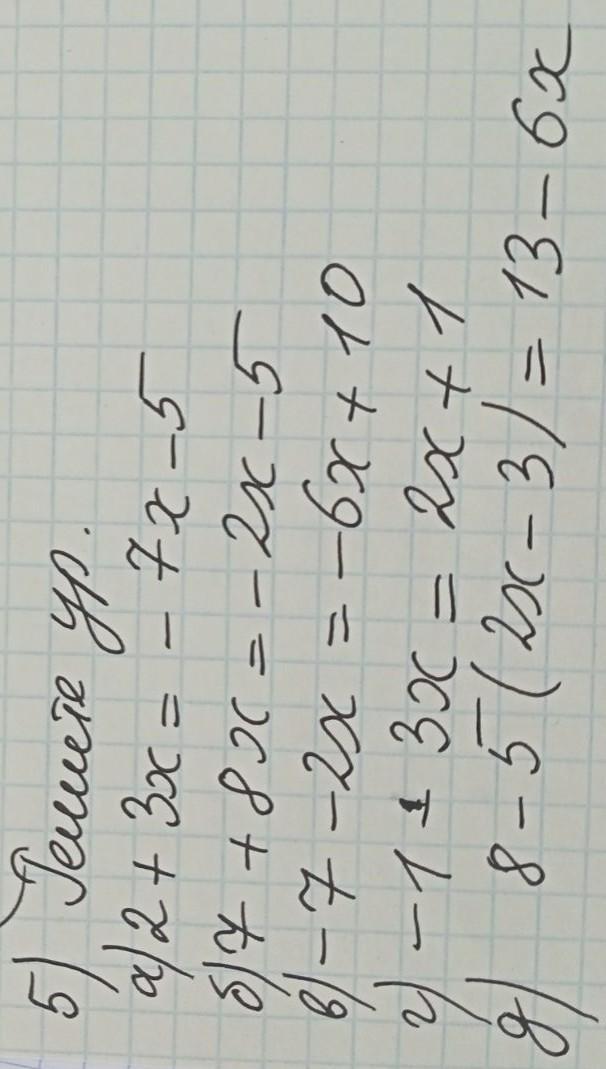 5) Решите ур.
а) 2 + 3x = - 7x - 5
б) 7 + 8x = - 2x - 5
в) - 7 - 2x = - 6x + 10
г) - 1 - 3x = 2x + 1
д) 8 - 5(2x - 3) = 13 - 6x